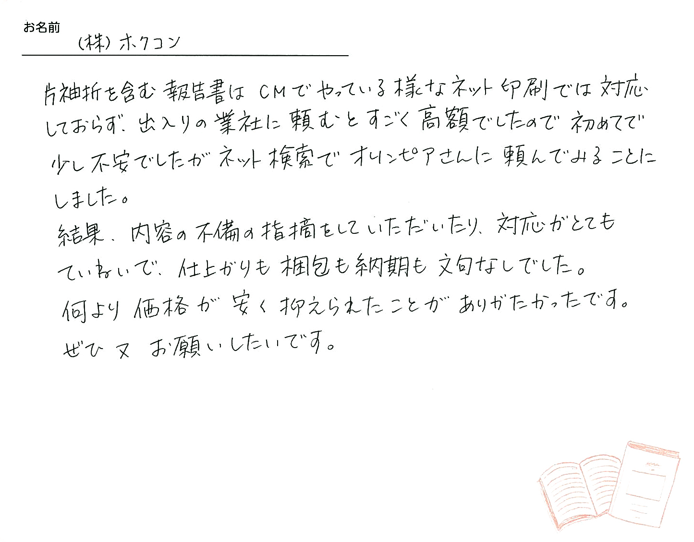 お名前
（株）ホクコン
片袖折を含む報告書はCMでやっている様なネット印刷では対応
しておらず、出入りの業社に頼むとすごく高額でしたので初めてで
少し不安でしたがネット検索でオリンピアさんに頼んでみることに
しました。
結果、内容の不備の指摘をしていただいたり、対応がとても
ていねいで、仕上がりも梱包も納期も文句なしでした。
何より価格が安く抑えられたことがありがたかったです。
ぜひ又お願いしたいです。